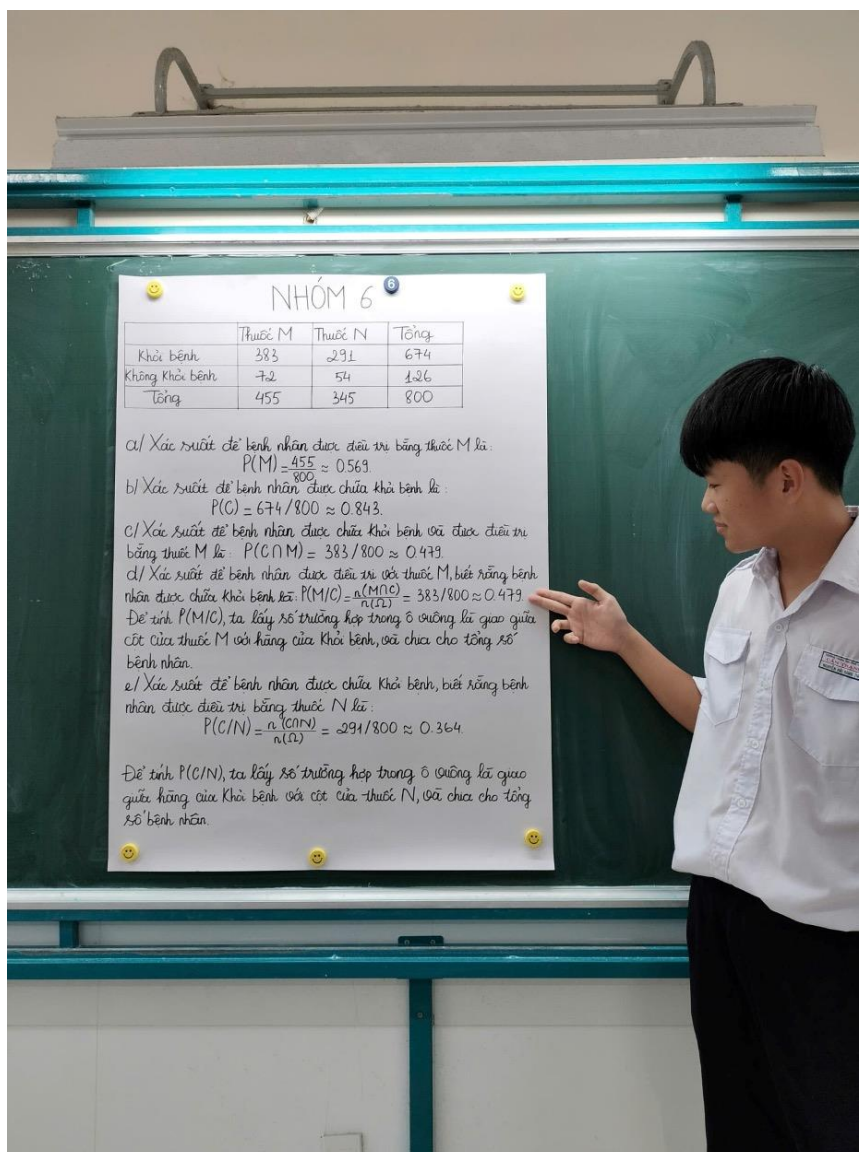 NHÓM 6
6
Thuốc M Thuốc N Tổng
Khỏi bệnh 383 291 674
Không Khỏi bệnh 72 54 126
Tổng 455 345 800
a/ Xác suất để bệnh nhân được điều trị bằng thuốc M là:
P(M) = 455/800 ≈ 0.569.
b/ Xác suất để bệnh nhân được chữa khỏi bệnh là:
P(C) = 674/800 ≈ 0.843.
c/ Xác suất để bệnh nhân được chữa khỏi bệnh và được điều trị
bằng thuốc M là: P(C∩M) = 383/800 ≈ 0.479.
d/ Xác suất để bệnh nhân được điều trị với thuốc M, biết rằng bệnh
nhân được chữa khỏi bệnh là: P(M/C) = n(M∩C)/n(Ω) = 383/800 ≈ 0.479.
Để tính P(M/C), ta lấy số trường hợp trong ô vuông là giao giữa
cột của thuốc M với hàng của Khỏi bệnh, và chia cho tổng số
bệnh nhân.
e/ Xác suất để bệnh nhân được chữa khỏi bệnh, biết rằng bệnh
nhân được điều trị bằng thuốc N là:
P(C/N) = n(C∩N)/n(Ω) = 291/800 ≈ 0.364.
Để tính P(C/N), ta lấy số trường hợp trong ô vuông là giao
giữa hàng của Khỏi bệnh với cột của thuốc N, và chia cho tổng
số bệnh nhân.